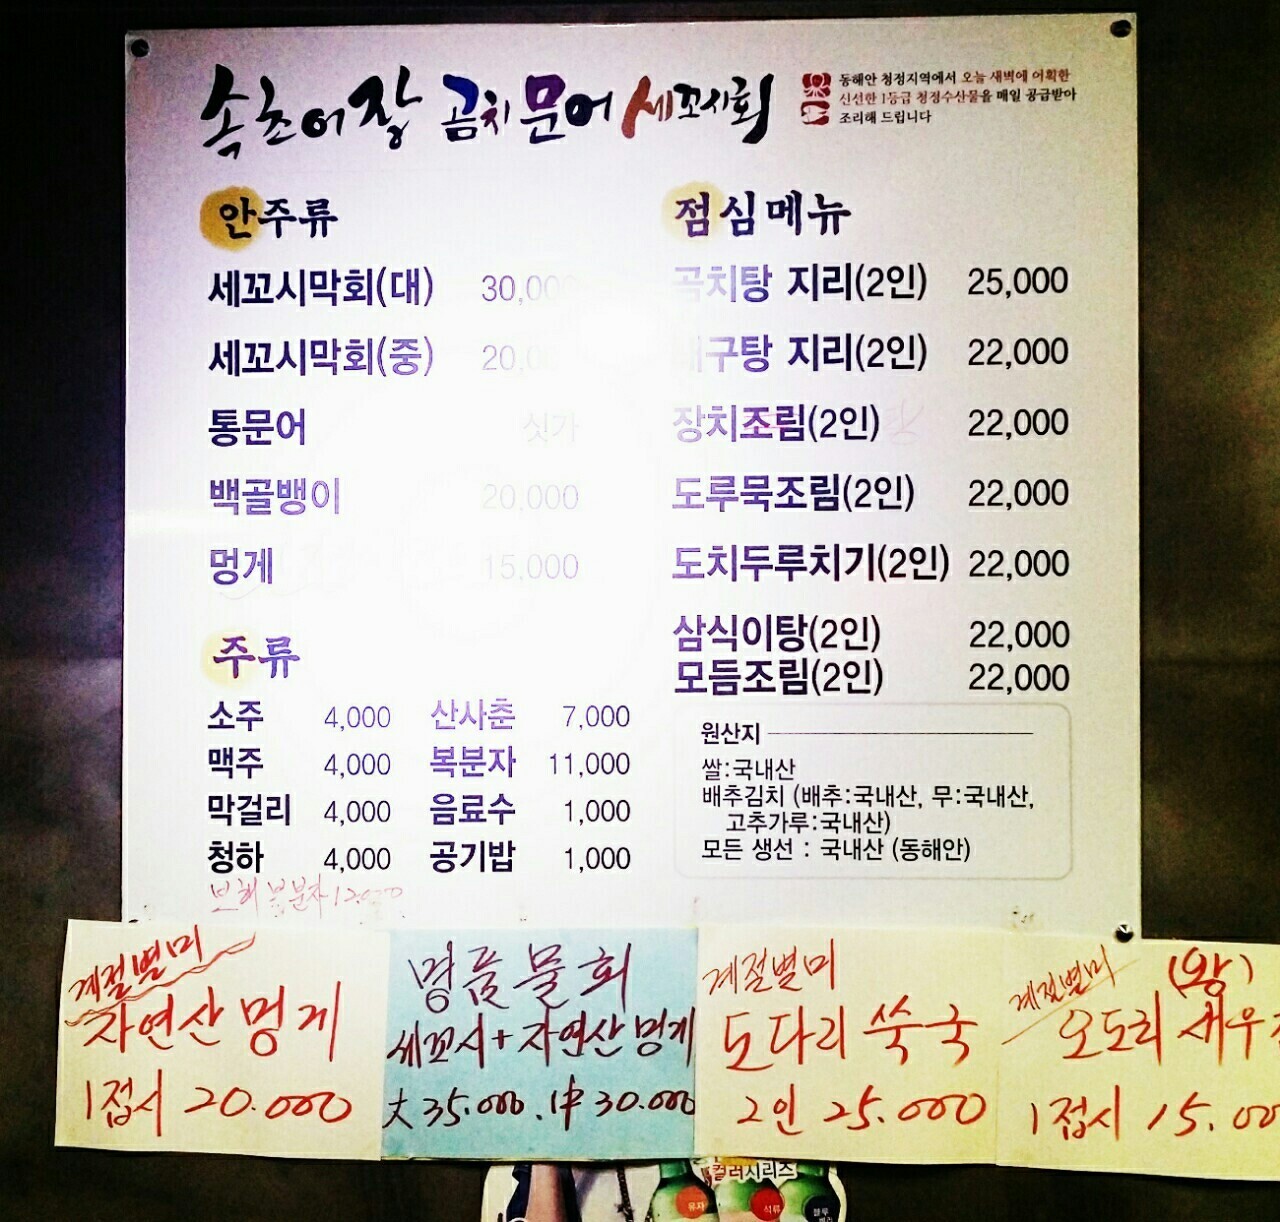 속초어장 곰치 문어 세꼬시회
동해안 청정지역에서 오늘 새벽에 어획한
신선한 1등급 청정수산물을 매일 공급받아
조리해 드립니다
안주류
세꼬시막회(대) 30,000
세꼬시막회(중) 20,000
통문어 싯가
백골뱅이 20,000
멍게 15,000
주류
소주 4,000 산사춘 7,000
맥주 4,000 복분자 11,000
막걸리 4,000 음료수 1,000
청하 4,000 공기밥 1,000
보해복분자 12.000
점심메뉴
곰치탕 지리(2인) 25,000
대구탕 지리(2인) 22,000
장치조림(2인) 22,000
도루묵조림(2인) 22,000
도치두루치기(2인) 22,000
삼식이탕(2인) 22,000
모듬조림(2인) 22,000
원산지
쌀:국내산
배추김치 (배추:국내산, 무:국내산,
고추가루:국내산)
모든 생선 : 국내산 (동해안)
계절별미
자연산 멍게
1접시 20.000
명품물회
세꼬시+자연산멍게
大 35.000. 中 30.000
계절별미
도다리 쑥국
2인 25.000
계절별미 (왕)
오도리 새우
1접시 15.00
컬러시리즈
유자 석류 블루